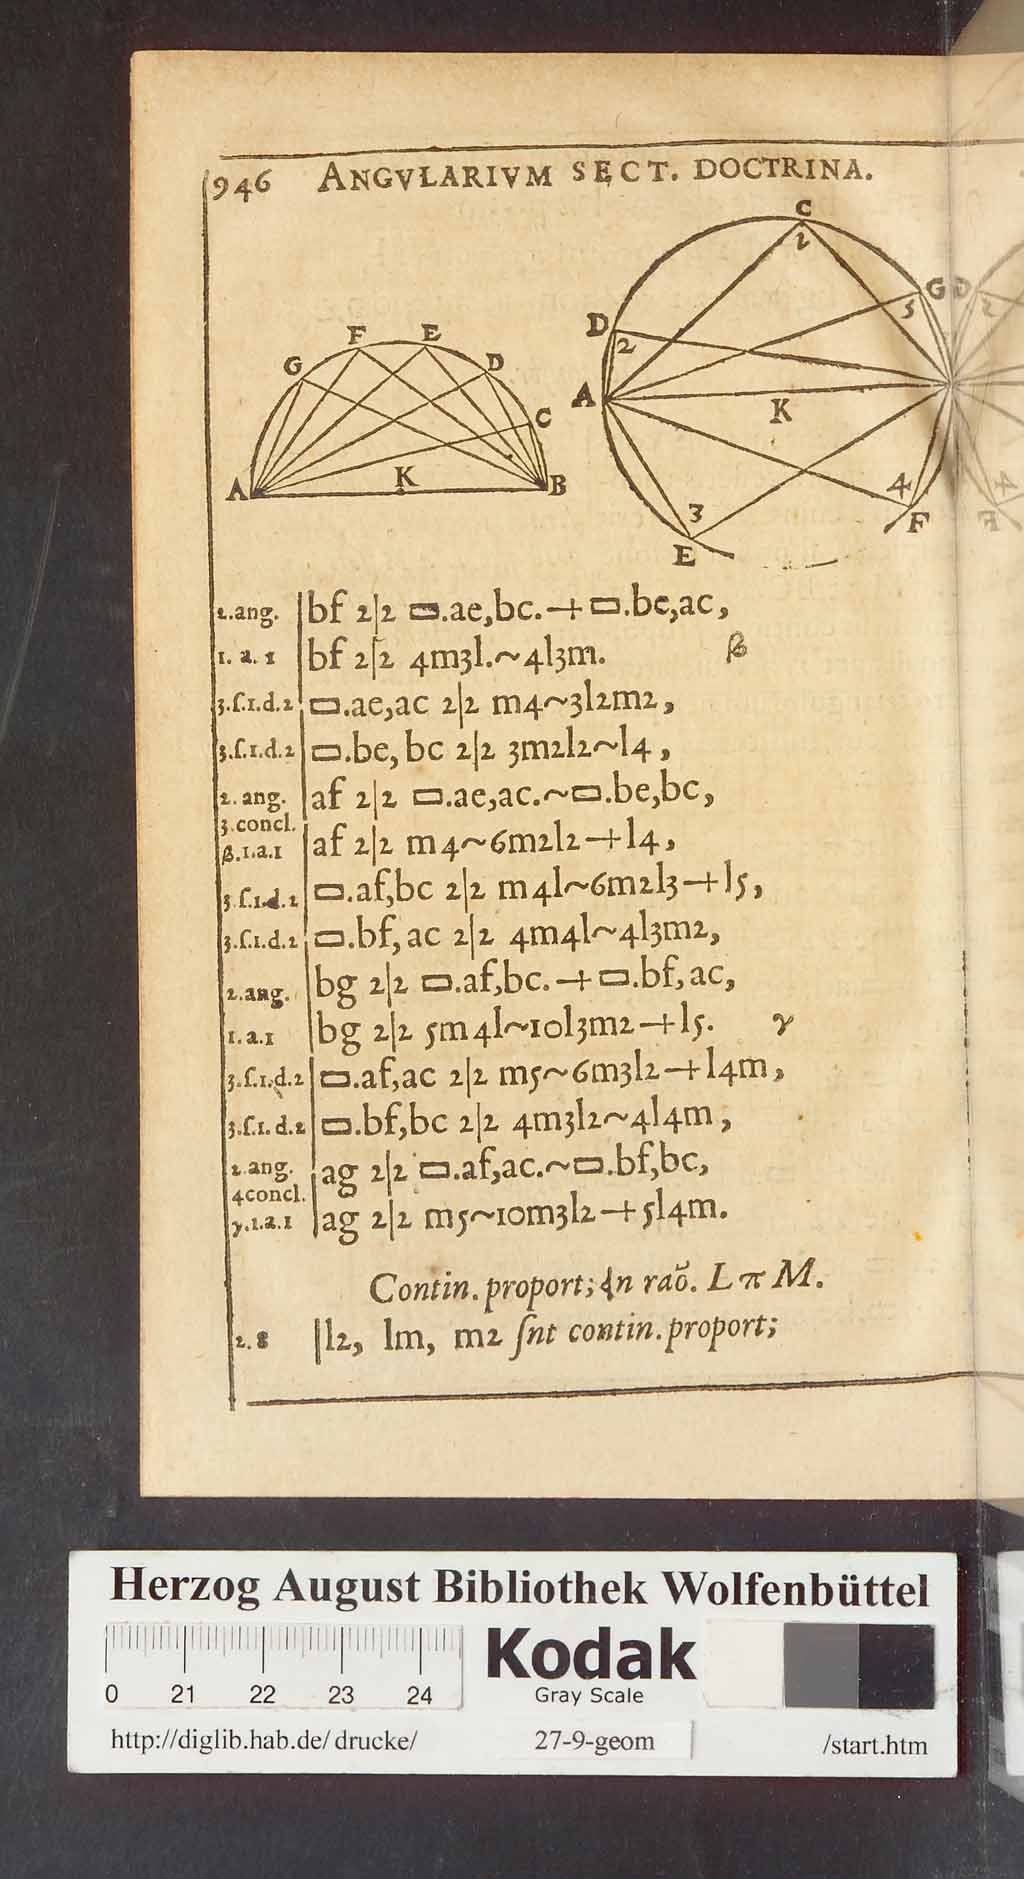 946 ANGVLARIVM SECT. DOCTRINA.
C
2
G
5
D
2
A
K
4
F
3
E
F E
G D
C
K
A B
2.ang. bf 2|2 ▭.ae,bc.+▭.be,ac,
1. a. 1 bf 2|2 4m3l.~4l3m. β
3.ſ.1.d.2 ▭.ae,ac 2|2 m4~3l2m2,
3.ſ.1.d.2 ▭.be, bc 2|2 3m2l2~l4,
2. ang. af 2|2 ▭.ae,ac.~▭.be,bc,
3.concl.
β.1.a.1 af 2|2 m4~6m2l2+l4,
3.ſ.1.d.2 ▭.af,bc 2|2 m4l~6m2l3+l5,
3.ſ.1.d.2 ▭.bf, ac 2|2 4m4l~4l3m2,
2.ang. bg 2|2 ▭.af,bc.+▭.bf, ac,
1.a.1 bg 2|2 5m4l~10l3m2+l5. γ
3.ſ.1.d.2 ▭.af,ac 2|2 m5~6m3l2+l4m,
3.ſ.1.d.2 ▭.bf,bc 2|2 4m3l2~4l4m,
2.ang. ag 2|2 ▭.af,ac.~▭.bf,bc,
4concl.
γ.1.a.1 ag 2|2 m5~10m3l2+5l4m.
Contin. proport; in raõ. L π M.
2.8 l2, lm, m2 ſnt contin. proport;
Herzog August Bibliothek Wolfenbüttel
0 21 22 23 24
Kodak
Gray Scale
http://diglib.hab.de/drucke/ 27-9-geom /start.htm